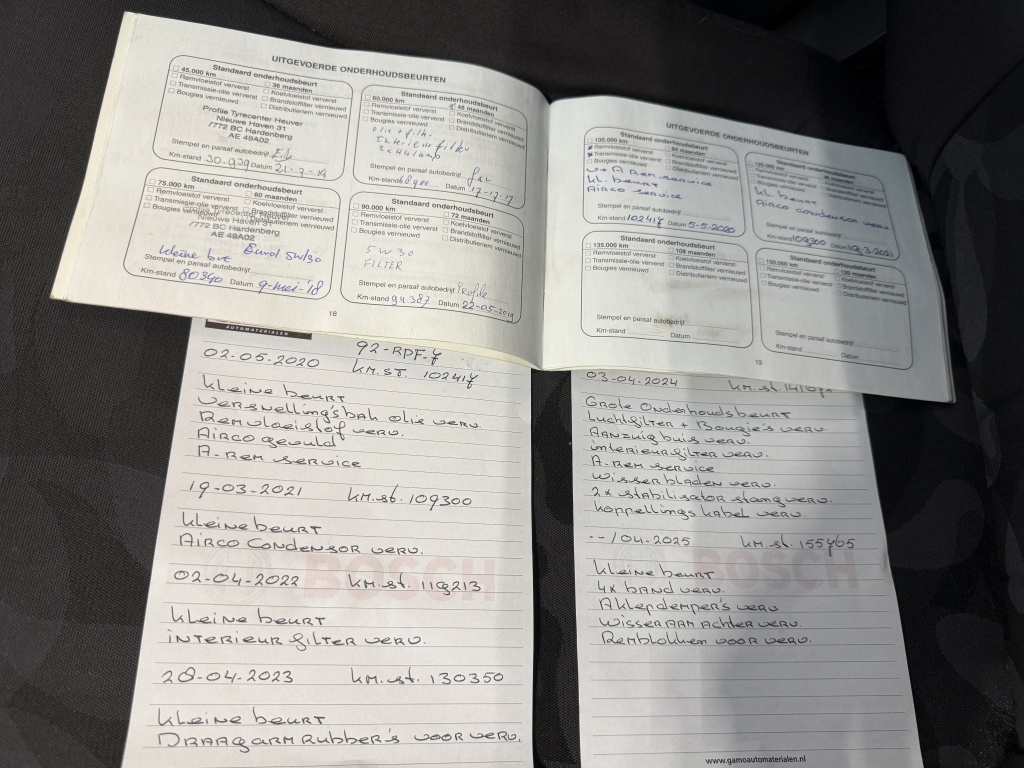 UITGEVOERDE ONDERHOUDSBEURTEN
Standaard onderhoudsbeurt
45.000 km 36 maanden
Remvloeistof ververst Koelvloeistof ververst
Transmissie-olie ververst Brandstoffilter vernieuwd
Bougies vernieuwd Distributieriem vernieuwd
Profile Tyrecenter Heuver
Nieuwe Haven 31
7772 BC Hardenberg
AE 49A02
Stempel en paraaf autobedrijf
Km-stand 30.939 Datum
Standaard onderhoudsbeurt
60.000 km 48 maanden
Remvloeistof ververst Koelvloeistof ververst
Transmissie-olie ververst Brandstoffilter vernieuwd
Bougies vernieuwd Distributieriem vernieuwd
olie + filter
Interieurfilter
Stempel en paraaf autobedrijf
Km-stand 68900 Datum 17-7-17
Standaard onderhoudsbeurt
75.000 km 60 maanden
Remvloeistof ververst Koelvloeistof ververst
Transmissie-olie ververst Brandstoffilter vernieuwd
Bougies vernieuwd Distributieriem vernieuwd
Profile Tyrecenter Heuver
Nieuwe Haven 31
7772 BC Hardenberg
AE 49A02
kleine brt Eurol 5w30
Stempel en paraaf autobedrijf
Km-stand 80340 Datum 9-mei-'18
Standaard onderhoudsbeurt
90.000 km 72 maanden
Remvloeistof ververst Koelvloeistof ververst
Transmissie-olie ververst Brandstoffilter vernieuwd
Bougies vernieuwd Distributieriem vernieuwd
5W30
FILTER
Stempel en paraaf autobedrijf Profile
Km-stand 94.387 Datum 22-05-2019
18
UITGEVOERDE ONDERHOUDSBEURTEN
Standaard onderhoudsbeurt
105.000 km 84 maanden
Remvloeistof ververst Koelvloeistof ververst
Transmissie-olie ververst Brandstoffilter vernieuwd
Bougies vernieuwd Distributieriem vernieuwd
v+A Rem service
kl. beurt
Airco service
Stempel en paraaf autobedrijf
Km-stand 102417 Datum 5-5-2020
Standaard onderhoudsbeurt
kl. beurt
Airco condensor verv
Stempel en paraaf autobedrijf
Km-stand 109300 Datum 19-3-2021
Standaard onderhoudsbeurt
135.000 km 108 maanden
Remvloeistof ververst Koelvloeistof ververst
Transmissie-olie ververst Brandstoffilter vernieuwd
Bougies vernieuwd Distributieriem vernieuwd
Stempel en paraaf autobedrijf
Km-stand Datum
Standaard onderhoudsbeurt
150.000 km 120 maanden
Remvloeistof ververst Koelvloeistof ververst
Transmissie-olie ververst Brandstoffilter vernieuwd
Bougies vernieuwd Distributieriem vernieuwd
Stempel en paraaf autobedrijf
Km-stand Datum
19
AUTOMATERIALEN
92-RPF-7
02-05-2020 KM.ST. 102417
kleine beurt
Versnelling'sbak olie verv.
Remvloeistof verv.
Airco gevuld
A-Rem service
19-03-2021 KM.st. 109300
kleine beurt
Airco Condensor verv.
BOSCH
02-04-2022 KM.st. 119213
kleine beurt
interieur filter verv.
28-04-2023 KM.st. 130350
kleine beurt
Draagarm Rubber's voor verv.
03-04-2024 KM.st.
Grote Onderhoudsbeurt
Luchtfilter + Bougie's verv.
Aanzuig buis verv.
interieurfilter verv.
A-Rem service
Wisserbladen verv.
2x stabilisator stang verv.
Koppelling's kabel verv.
--/04-2025 KM.st. 155765
BOSCH
kleine beurt
4x band verv.
Aklepdemper's verv
Wisserarm Achter verv.
Remblokken voor verv.
www.gamoautomaterialen.nl